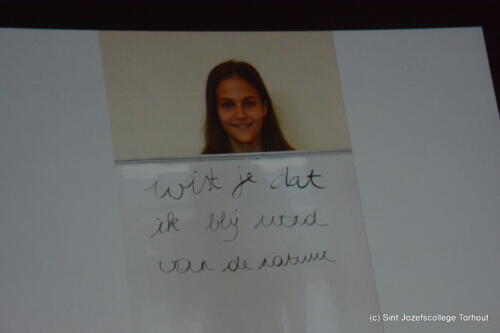 wist je dat
ik blij word
van de natuur
(c) Sint Jozefscollege Torhout